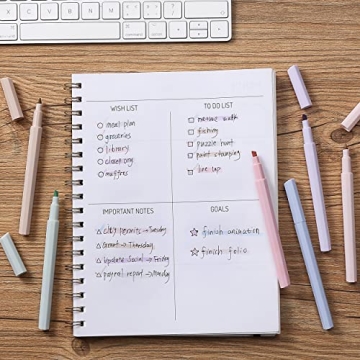 WISH LIST
meal plan
groceries
library
cleaning
muffins
TO DO LIST
nature walk
fishing
puzzle hunt
paint stamping
line up
IMPORTANT NOTES
Tuesday
Thursday
Update Social Friday
payroll report Tuesday
GOALS
finish animation
finish folio